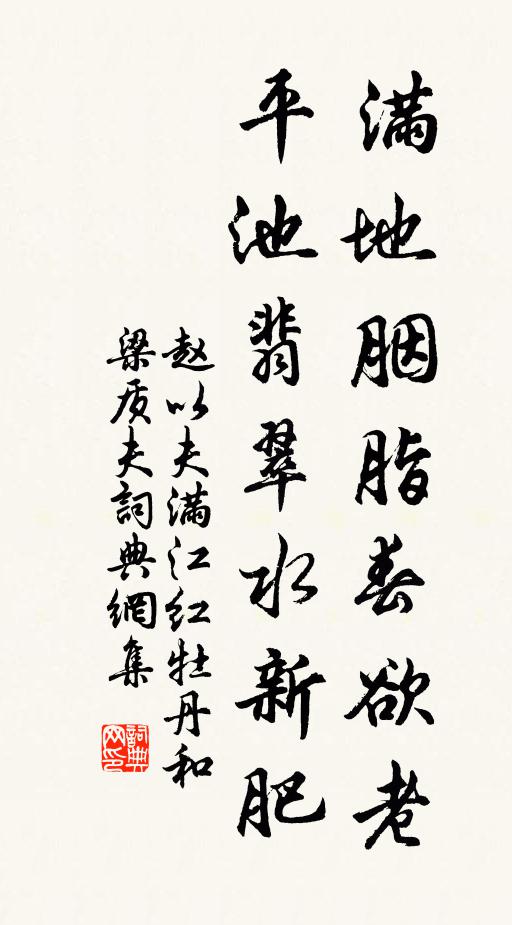 满地胭脂春欲老
平池翡翠水新肥
赵以夫满江红牡丹和
梁质夫詞典網集
詞典
网印